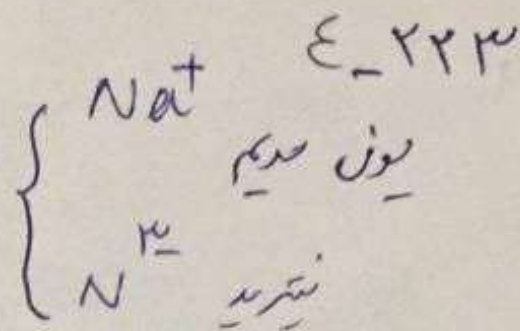 ۴_۲۲۳
Na⁺
یون سدیم
N³⁻ نیترید